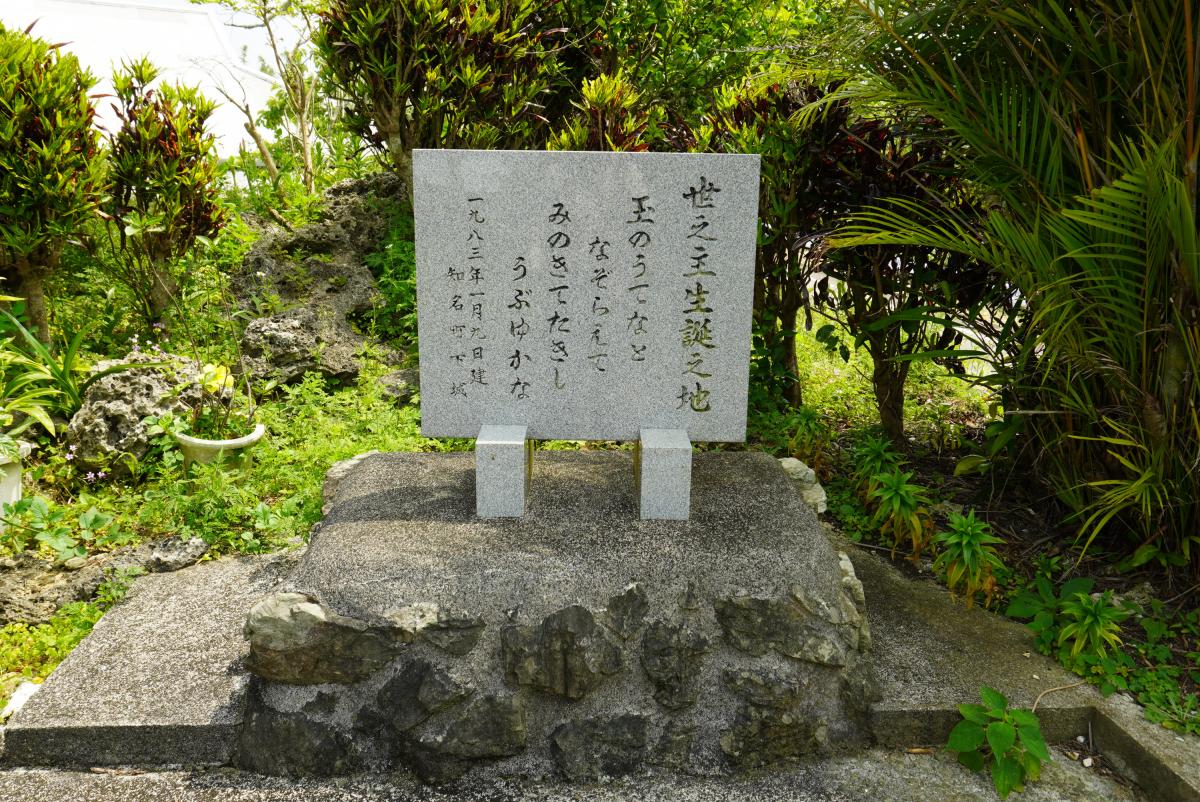 世之王生誕之地
玉のうてなと
なぞらえて
みのきてたきし
うぶゆかな
一九八三年一月九日建
知名町下城